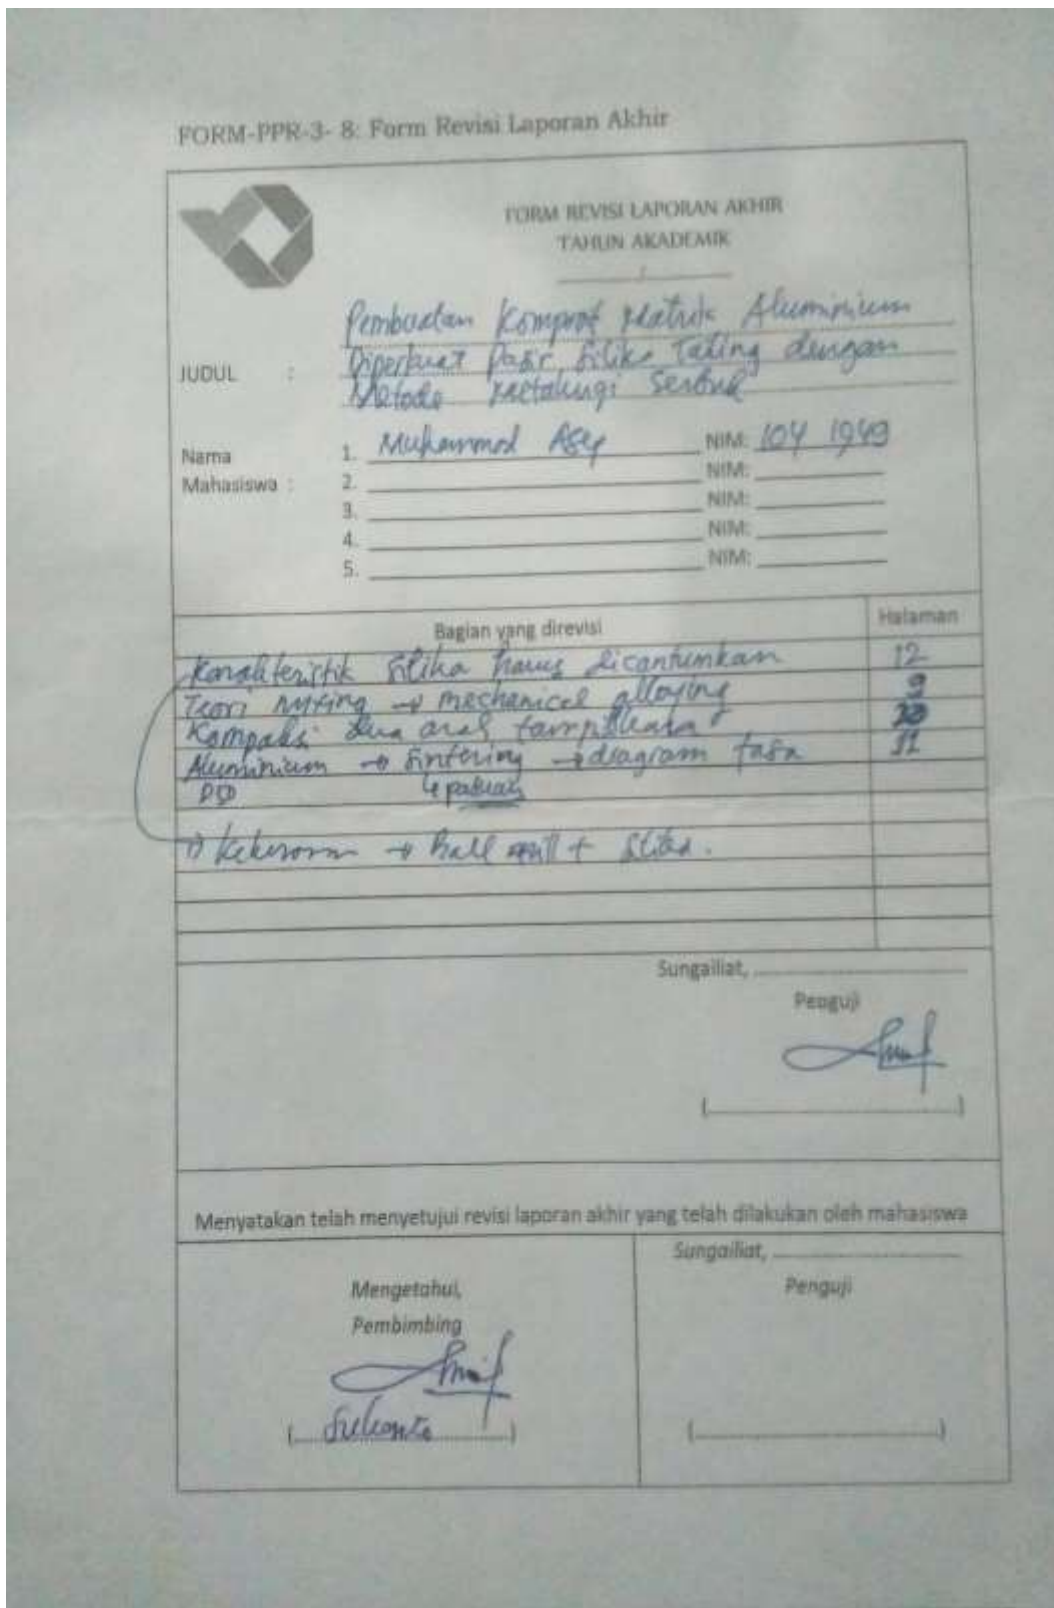 FORM-PPR-3- 8: Form Revisi Laporan Akhir
FORM REVISI LAPORAN AKHIR
TAHUN AKADEMIK
/
Pembuatan Komposit Matrik Aluminium
JUDUL : Diperkuat Pasir Silika Tailing dengan
Metode Metalurgi Serbuk
Nama
Mahasiswa :
1. Muhammad NIM: 104 1949
2. NIM:
3. NIM:
4. NIM:
5. NIM:
Bagian yang direvisi Halaman
Karakteristik Silika harus dicantumkan 12
Teori mixing → mechanical alloying 9
Kompaksi dua arah
Aluminium → Sintering → diagram fasa 11
paduan
Kekerasan → ball mill + silika.
Sungailiat,
Penguji
(                    )
Menyatakan telah menyetujui revisi laporan akhir yang telah dilakukan oleh mahasiswa
Mengetahui,
Pembimbing
( Sukanto )
Sungailiat,
Penguji
(                    )